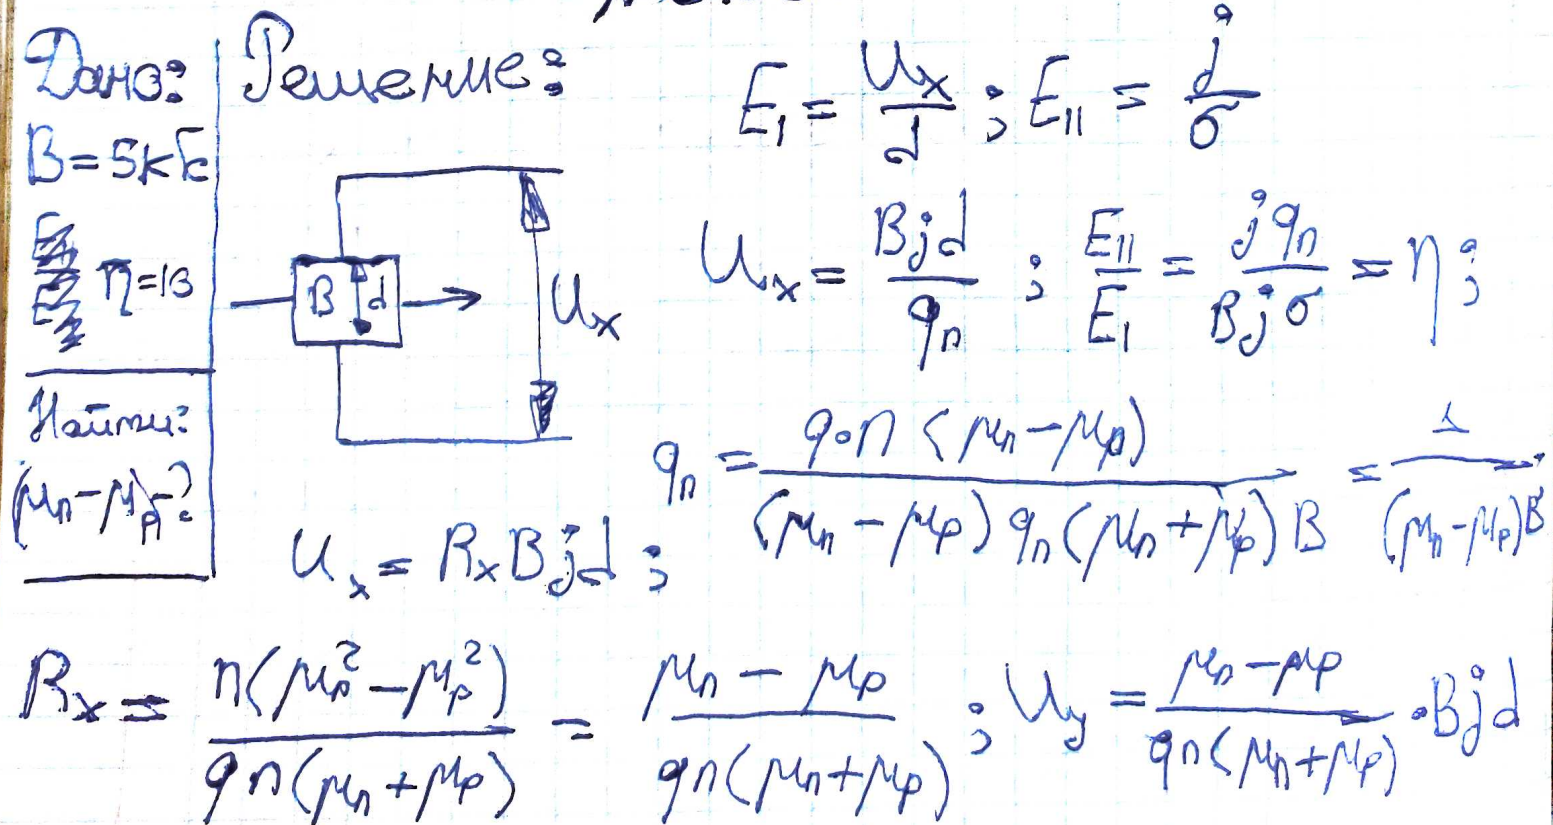 Дано:
B = 5кГс
η = 13
Найти:
(μn − μp) − ?
Решение:
B d
Ux
E⊥ = Ux / d ; E|| = j / σ
Ux = Bjd / qn ; E|| / E⊥ = jqn / Bjσ = η ;
qn = q·n (μn − μp) / (μn − μp) qn (μn + μp) B = 1 / (μn − μp) B
Ux = Rx Bjd ;
Rx = n(μn² − μp²) / qn(μn + μp) = μn − μp / qn(μn + μp) ; Uy = μn − μp / qn(μn + μp) · Bjd